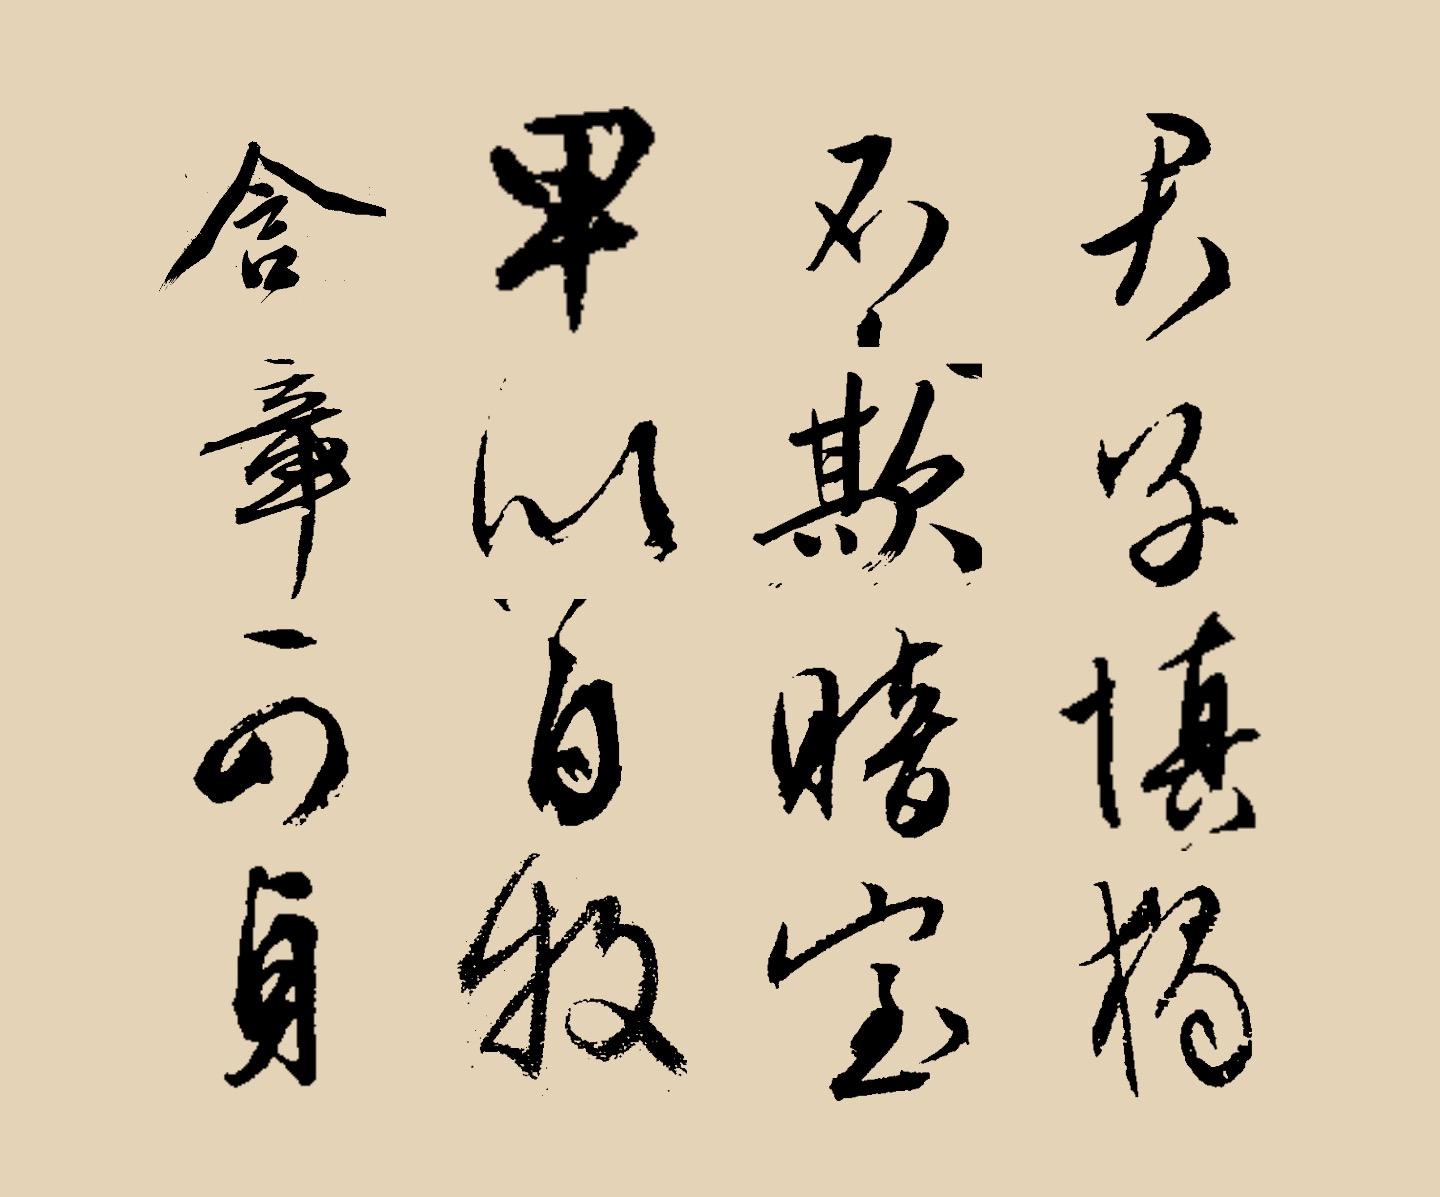 君子慎独
不欺暗室
卑以自牧
含章可贞